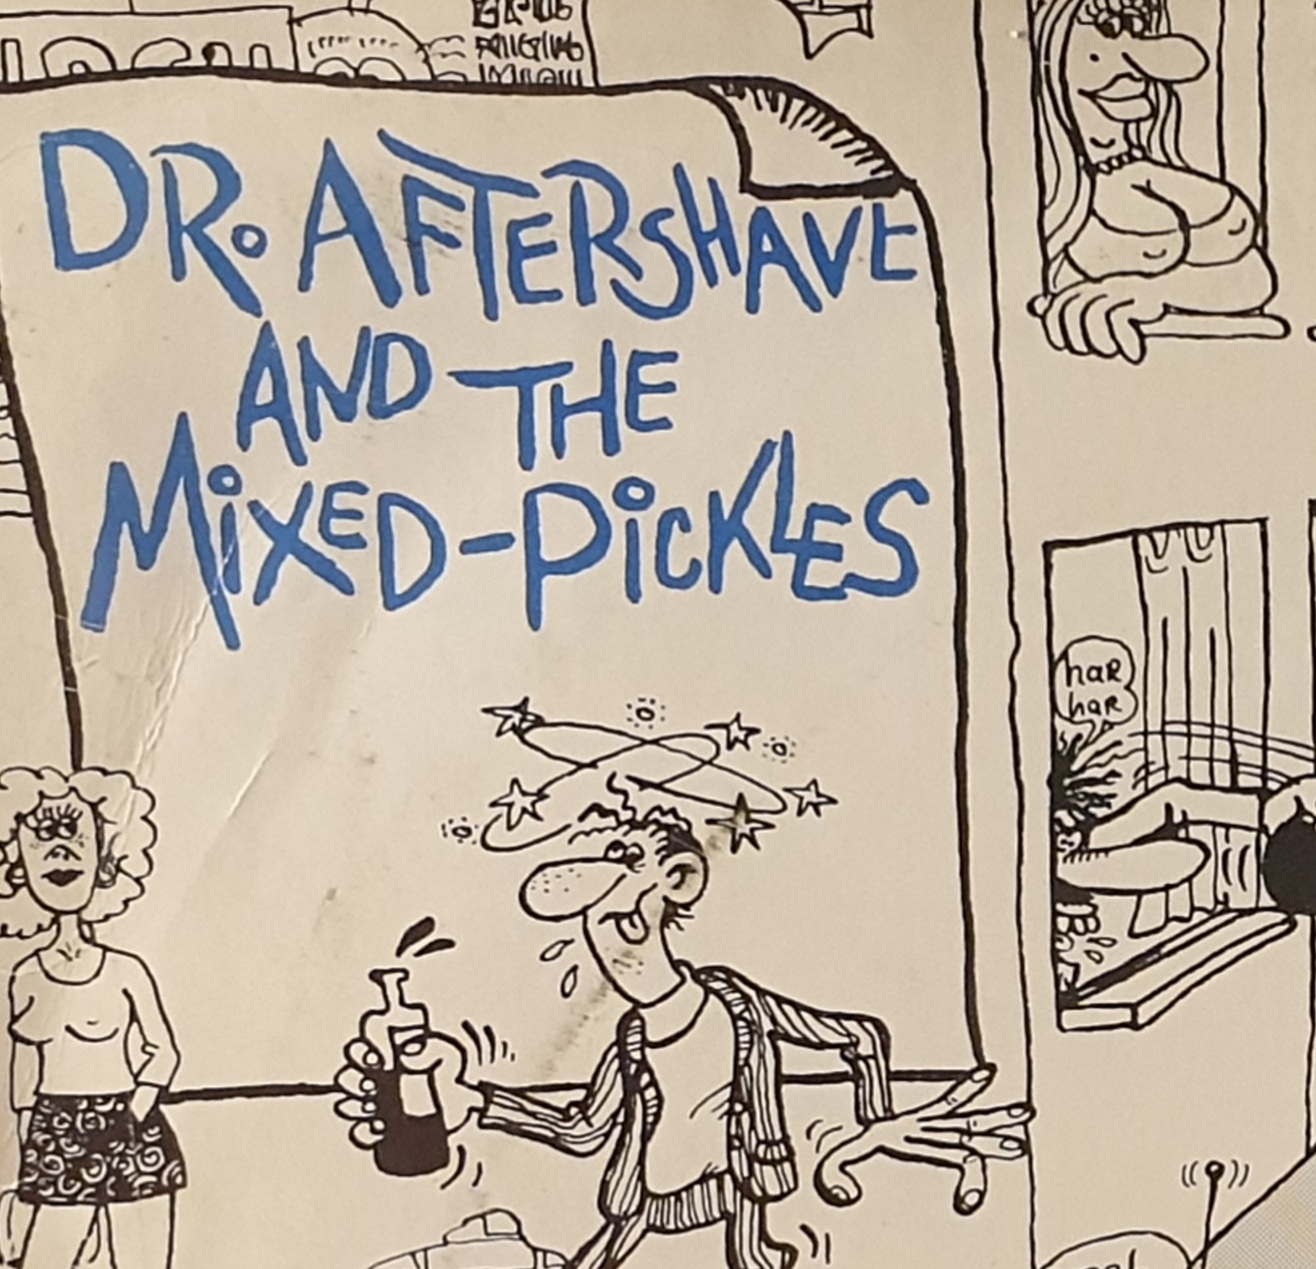 DR. AFTERSHAVE
AND THE
MiXED-PiCKLES
haR
haR